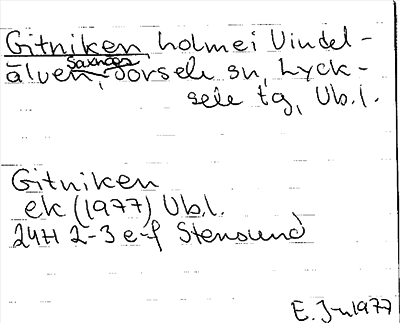 Gitniken, holme i Vindel-
Saxnäs
älven, Sorsele sn, Lyck-
sele tg, Vb.l.
Gitniken
ek (1977) Vb.l.
24H 2-3 e-f Stensund
E. J-n 1977